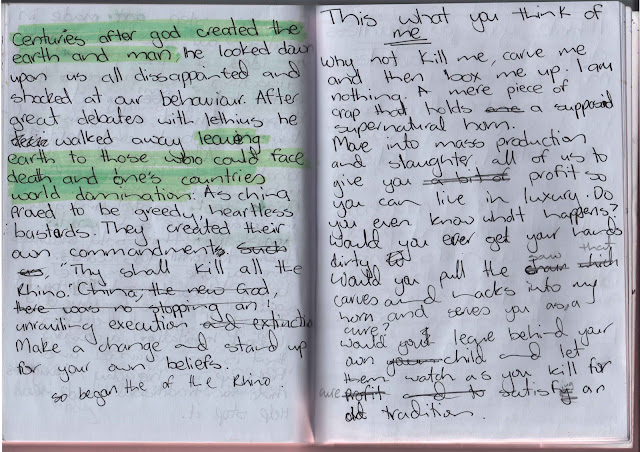 Centuries after god created the
earth and man, he looked down
upon us all dissappointed and
shocked at our behaviour. After
great debates with he
walked away leaving
earth to those who could face
death and one's countries
world domination. As china
proved to be greedy, heartless
bastards. They created their
own commandments. Such
as, "Thy shall kill all the
Rhino." China, the new God,
there was no stopping an
unrauiling execution and extinction
Make a change and stand up
for your own beliefs.
so began the of the Rhino.
This what you think of
me
Why not kill me, carve me
and then box me up. I am
nothing. A mere piece of
crap that holds a supposid
supernatural horn.
Move into mass production
and slaughter all of us to
give you a bit of profit so
you can live in luxury. Do
you even know what happens?
Would you ever get your hands
dirty?
Would you pull the chain which saw that
carves and hacks into my
horn and serves you as, a
cure?
Would you leave behind your
own your child and let
them watch as you kill for
cure profit and to satisfy an
old tradition.